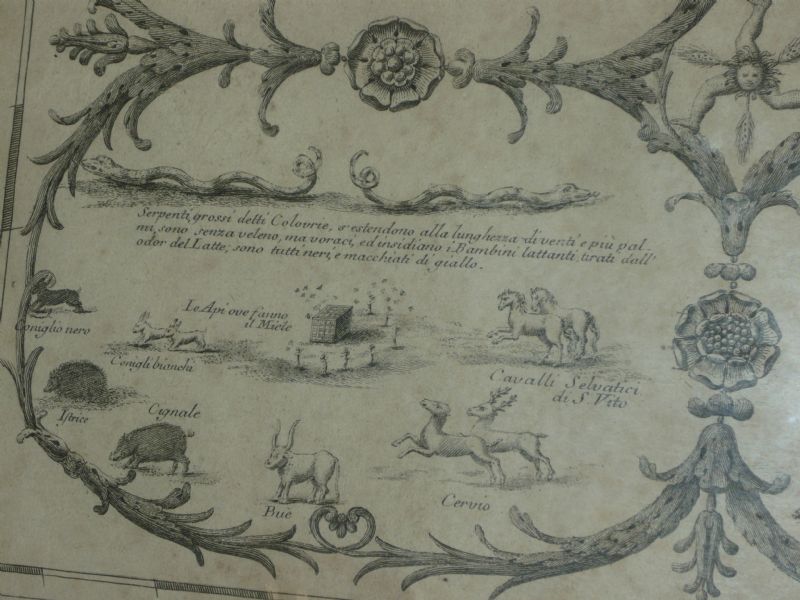 Serpenti, grossi detti Colovrie, s'estendono alla lunghezza di venti e più pal-
mi, sono senza veleno, ma voraci, ed insidiano i Bambini lattanti, tirati dall'
odor del Latte, sono tutti neri, e macchiati di giallo.
Coniglio nero
Conigli bianchi
Le Api ove fanno
il Miele
Cavalli Selvatici
di S. Vito
Istrice
Cignale
Bue
Cervio